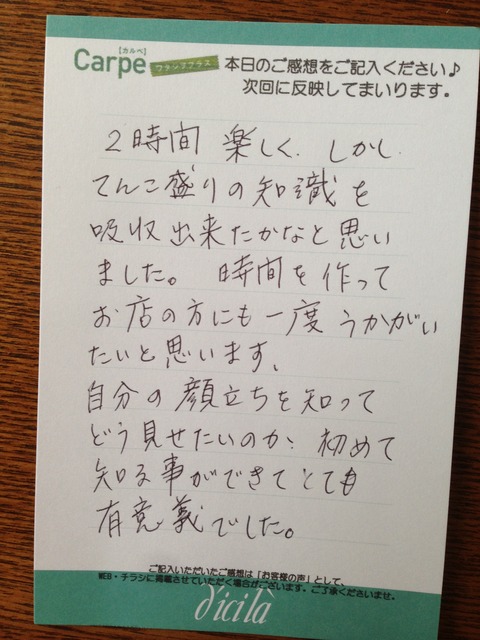 【カルペ】
Carpe
ワンランクプラス
本日のご感想をご記入ください♪
次回に反映してまいります。
2時間 楽しく、しかし
てんこ盛りの知識を
吸収出来たかなと思い
ました。 時間を作って
お店の方にも一度うかがい
たいと思います。
自分の顔立ちを知って
どう見せたいのか、初めて
知る事ができてとても
有意義でした。
ご記入いただいたご感想は「お客様の声」として、
WEB・チラシに掲載させていただく場合がございます。ご了承くださいませ。
dicila